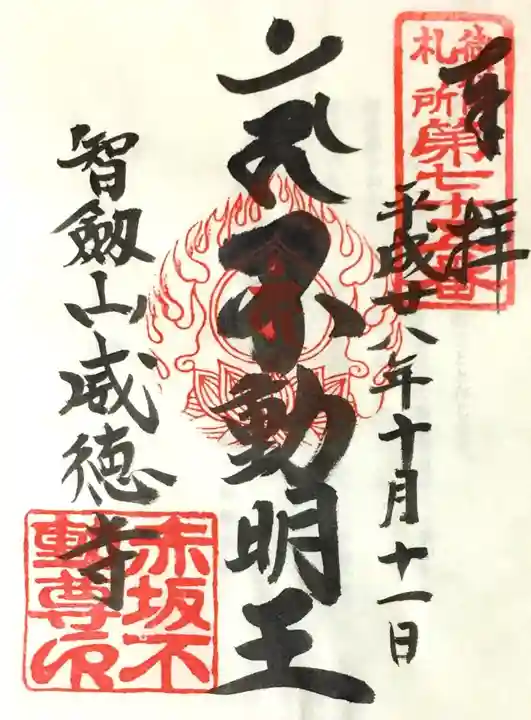 奉拝
平成廿八年十月十一日
不動明王
智劔山威徳寺
札所第七十五番
赤坂不動尊印